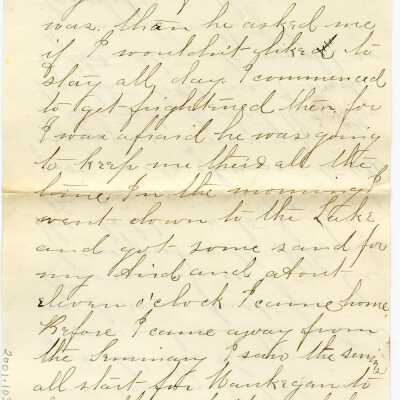 was. than he asked me
if I wouldn't liked to
stay all day I commenced
to get frightened then for
I was afraid he was going
to keep me their all the
time. In the morning I
went down to the Lake
and got some sand for
my bird and about
eleven o'clock I came home,
Before I came away from
the Seminary I saw the
all start for Waukegan to
2001.10